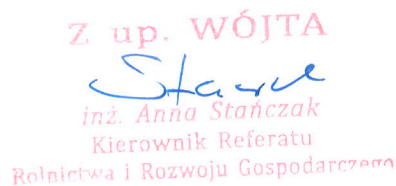 Z up. WÓJTA
inż. Anna Stańczak
Kierownik Referatu
Rolnictwa i Rozwoju Gospodarczego